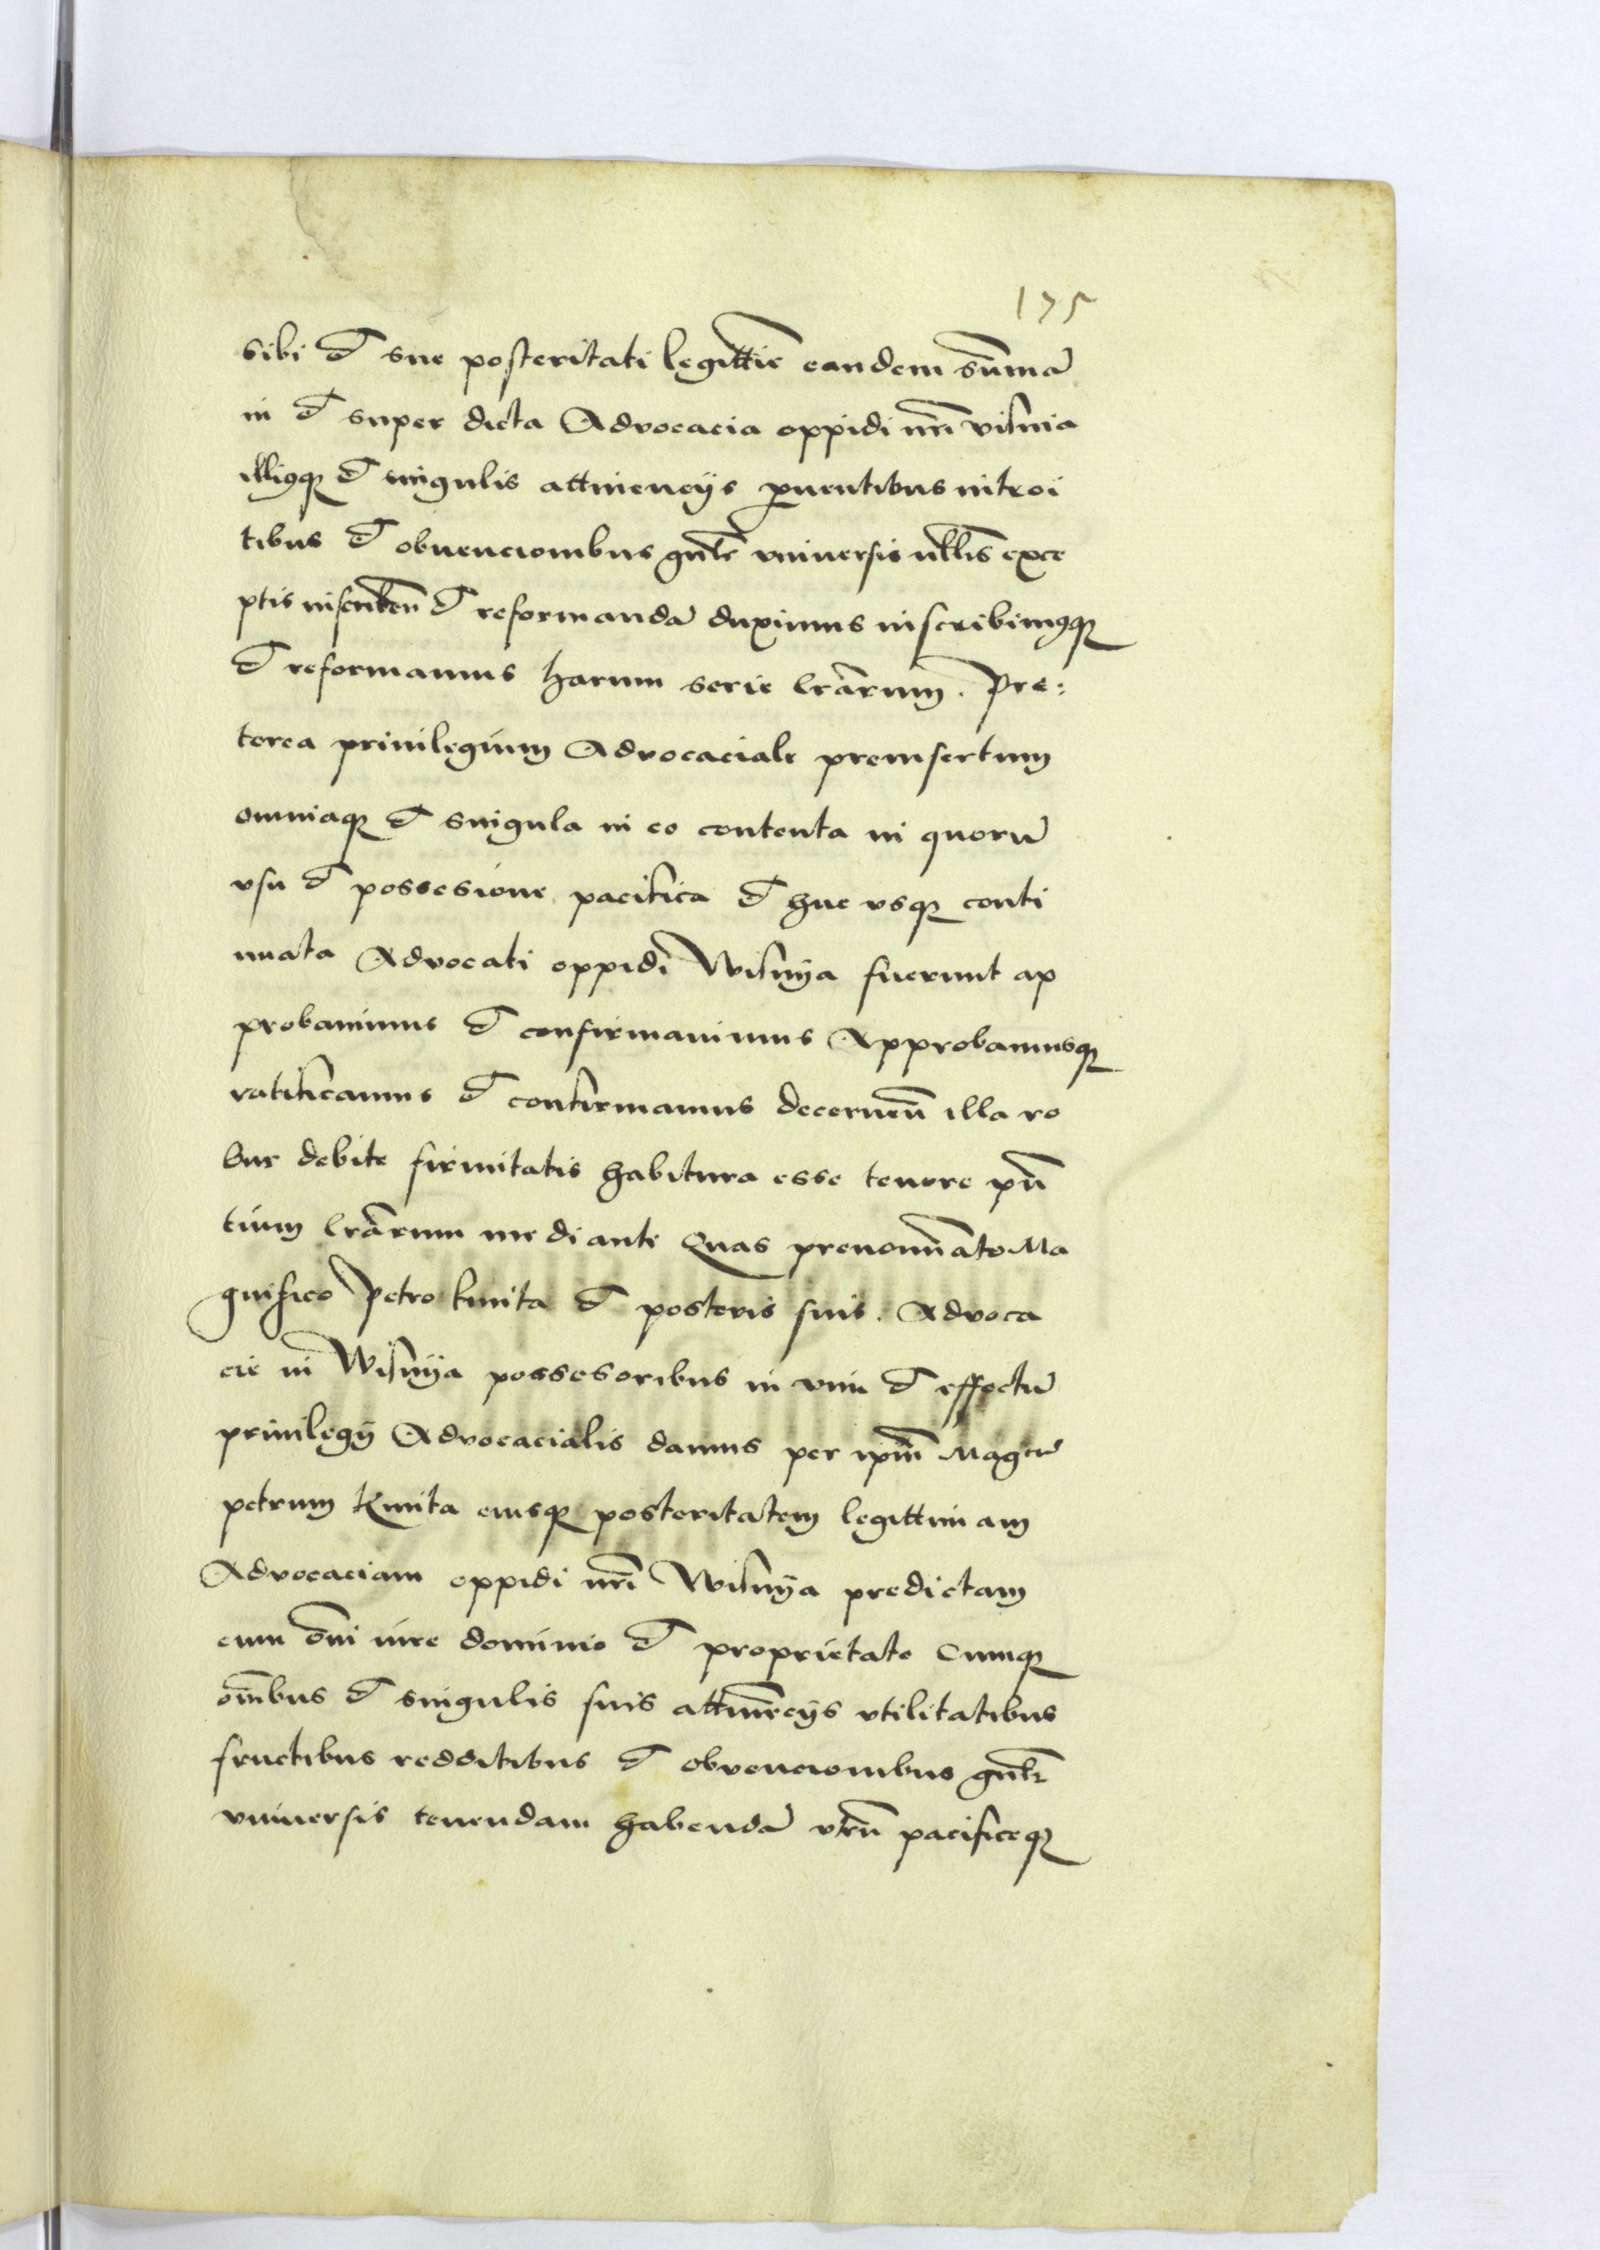 175
sibi et sue posteritati legittie eandem sum̄ā
in et super dicta Advocacia oppidi nr̄i visnia
illiqꝫ et singulis attinencijs ꝓuentibus introi
tibus et obuencionibus gn̄lr vniuersis nll̄is exce
ptis inscriben̄ et reformandā duximus inscribimqꝫ
et reformamus harum serie lrārum. Pre:
terea priuilegium Advocaciale preinsertum
omniaqꝫ et singula in eo contenta in quorū
vsu et possesione pacifica et huc vsqꝫ conti
nuata Advocati oppidi Wisnya fuerunt ap
probauimus et confirmauimus Approbamusqꝫ
ratificamus et confirmamus decernen̄ illa ro
bur debite firmitatis habitura esse tenore pn̄
tium lrārum mediante Quas prenomīato Ma
gnifico Petro kmita et posteris suis. Advoca
cie in Wisnÿa possesoribus in vim et effectū
priuilegÿ Advocacialis damus per ipm̄ Magcū
petrum kmita eiusqꝫ posteritatem legittimam
Advocaciam oppidi nr̄i Wisnÿa predictam
cum om̄i iure dominio et proprietate Cumqꝫ
om̄ibus et singulis suis attinēcijs vtilitatibus
fructibus redditibus et obvencionibus gn̄lr
vniuersis tenendam habendā vtn̄ pacificeqꝫ